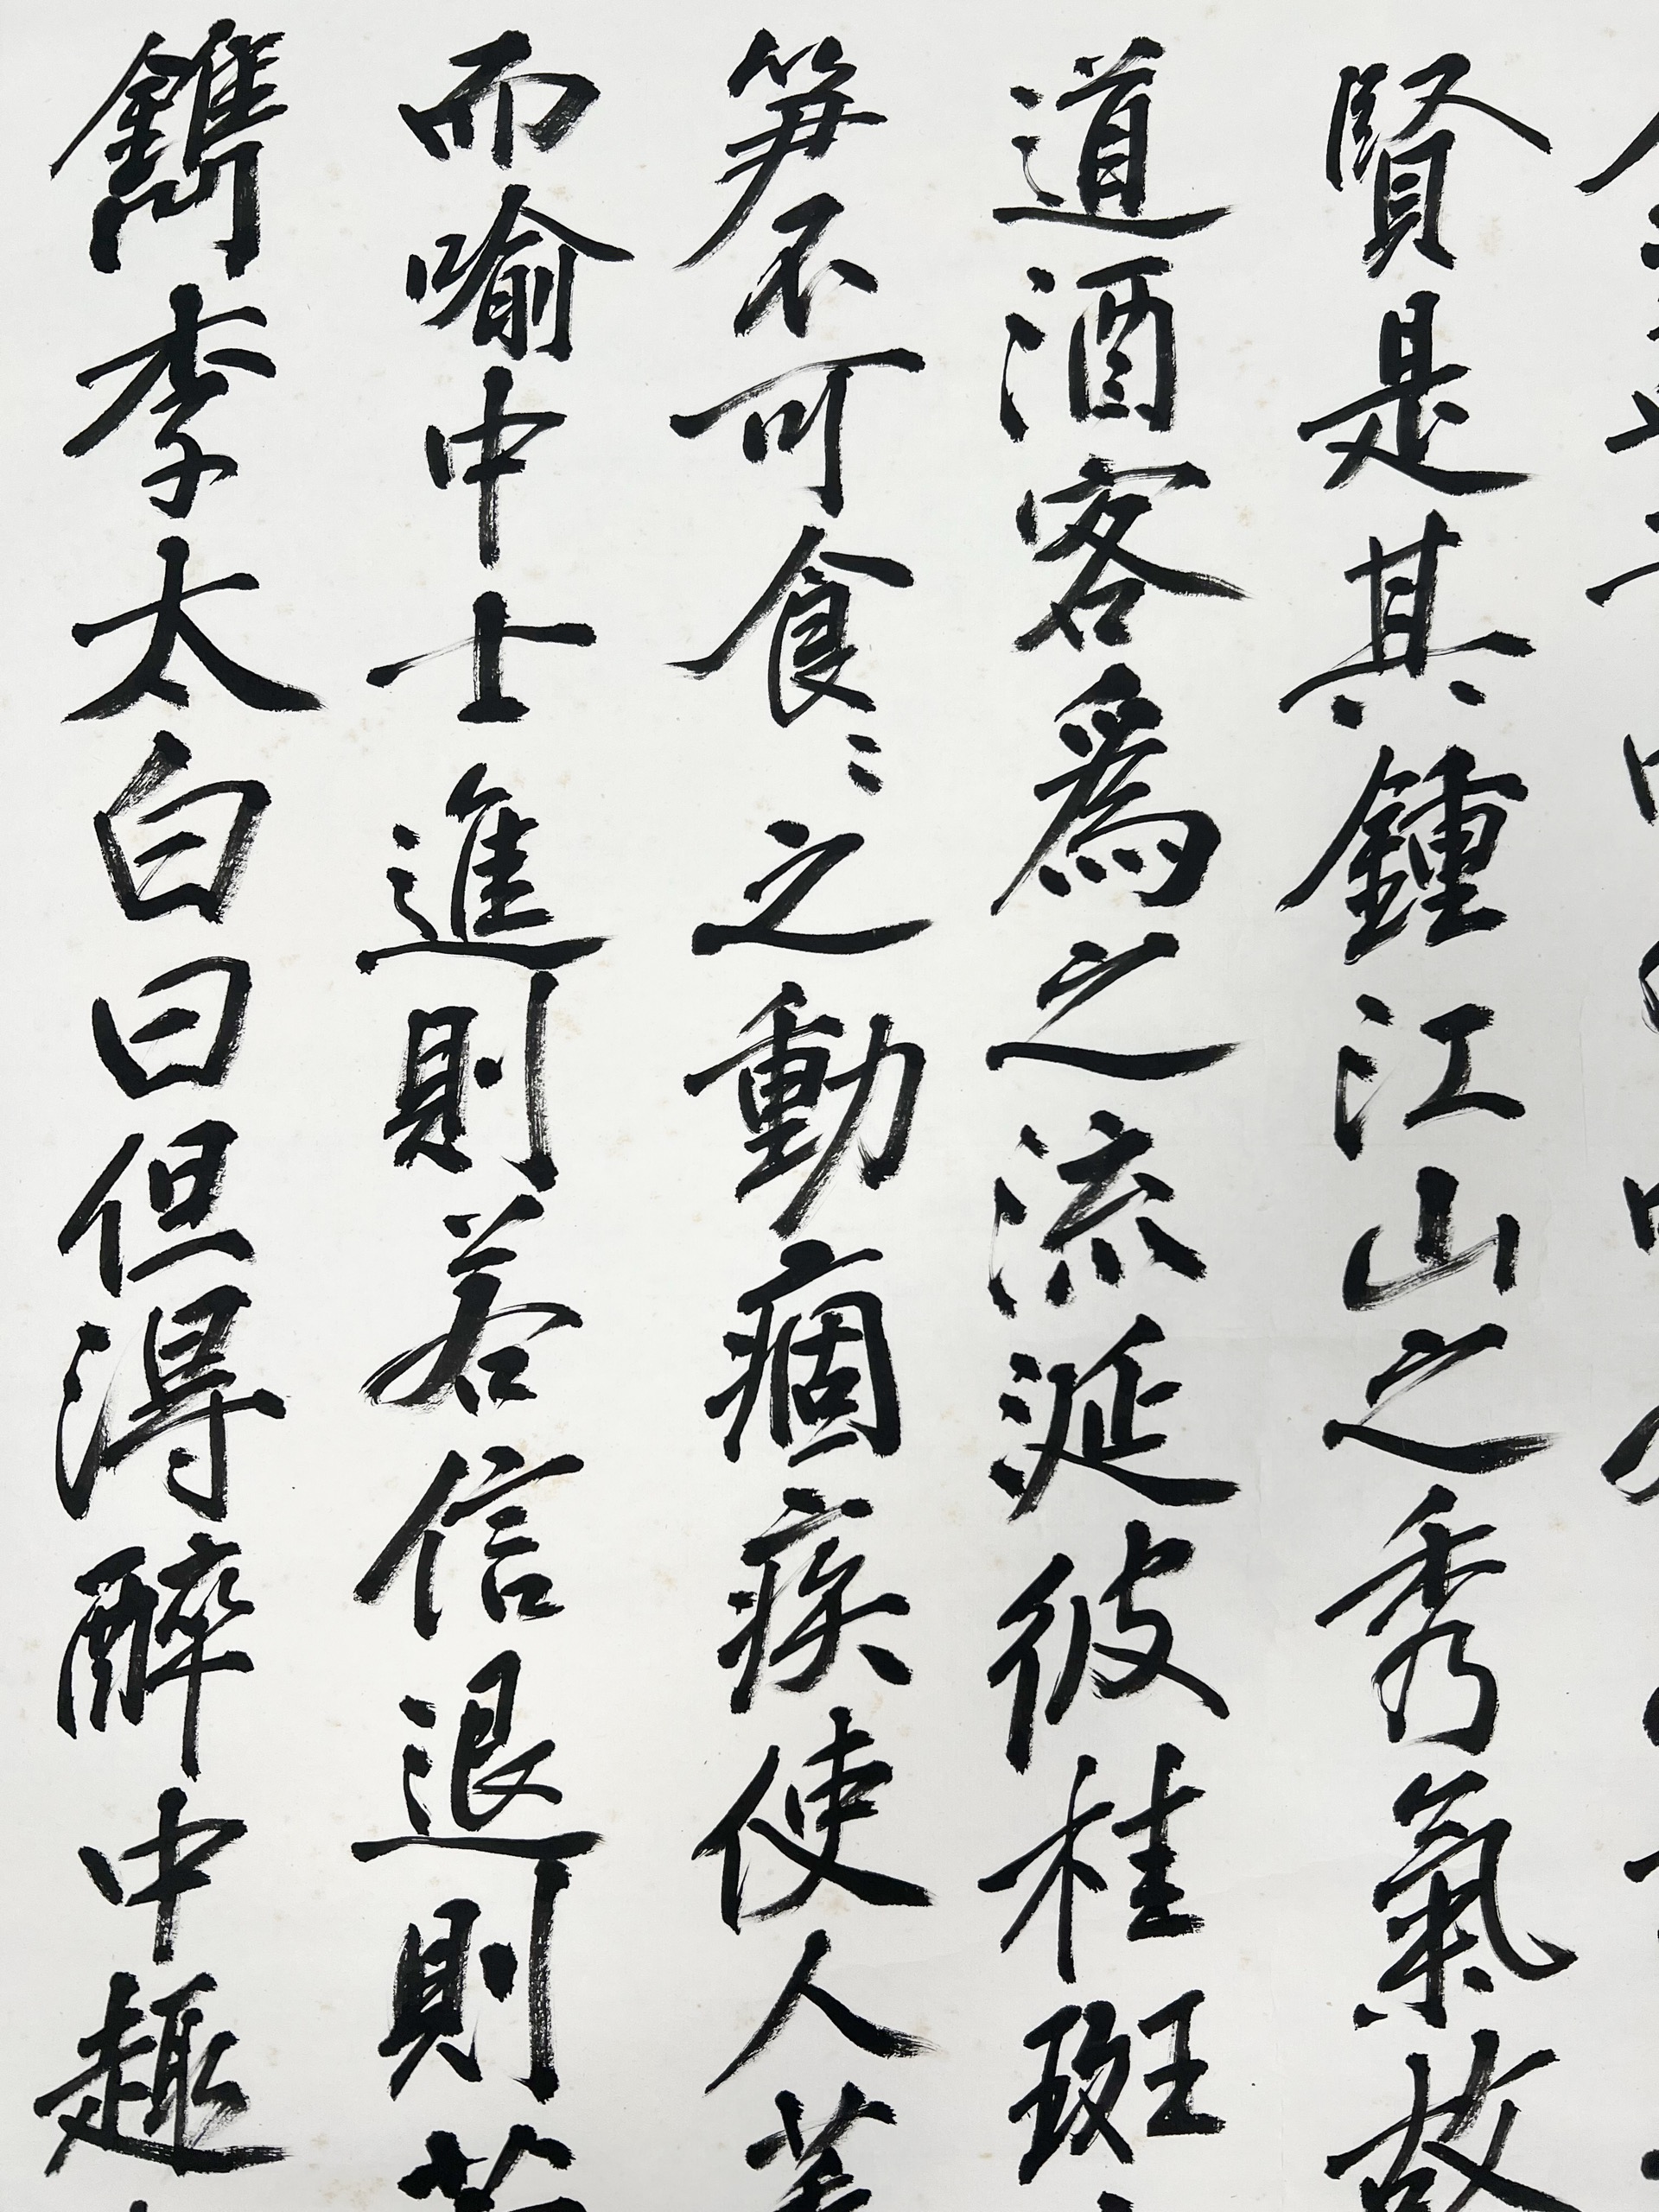 賢是其鍾江山之秀氣故
道酒客爲之流涎彼桂斑
笋不可食〻之動痼疾使人萋
而喻中士進則若信退則若
鐫李太白曰但得醉中趣